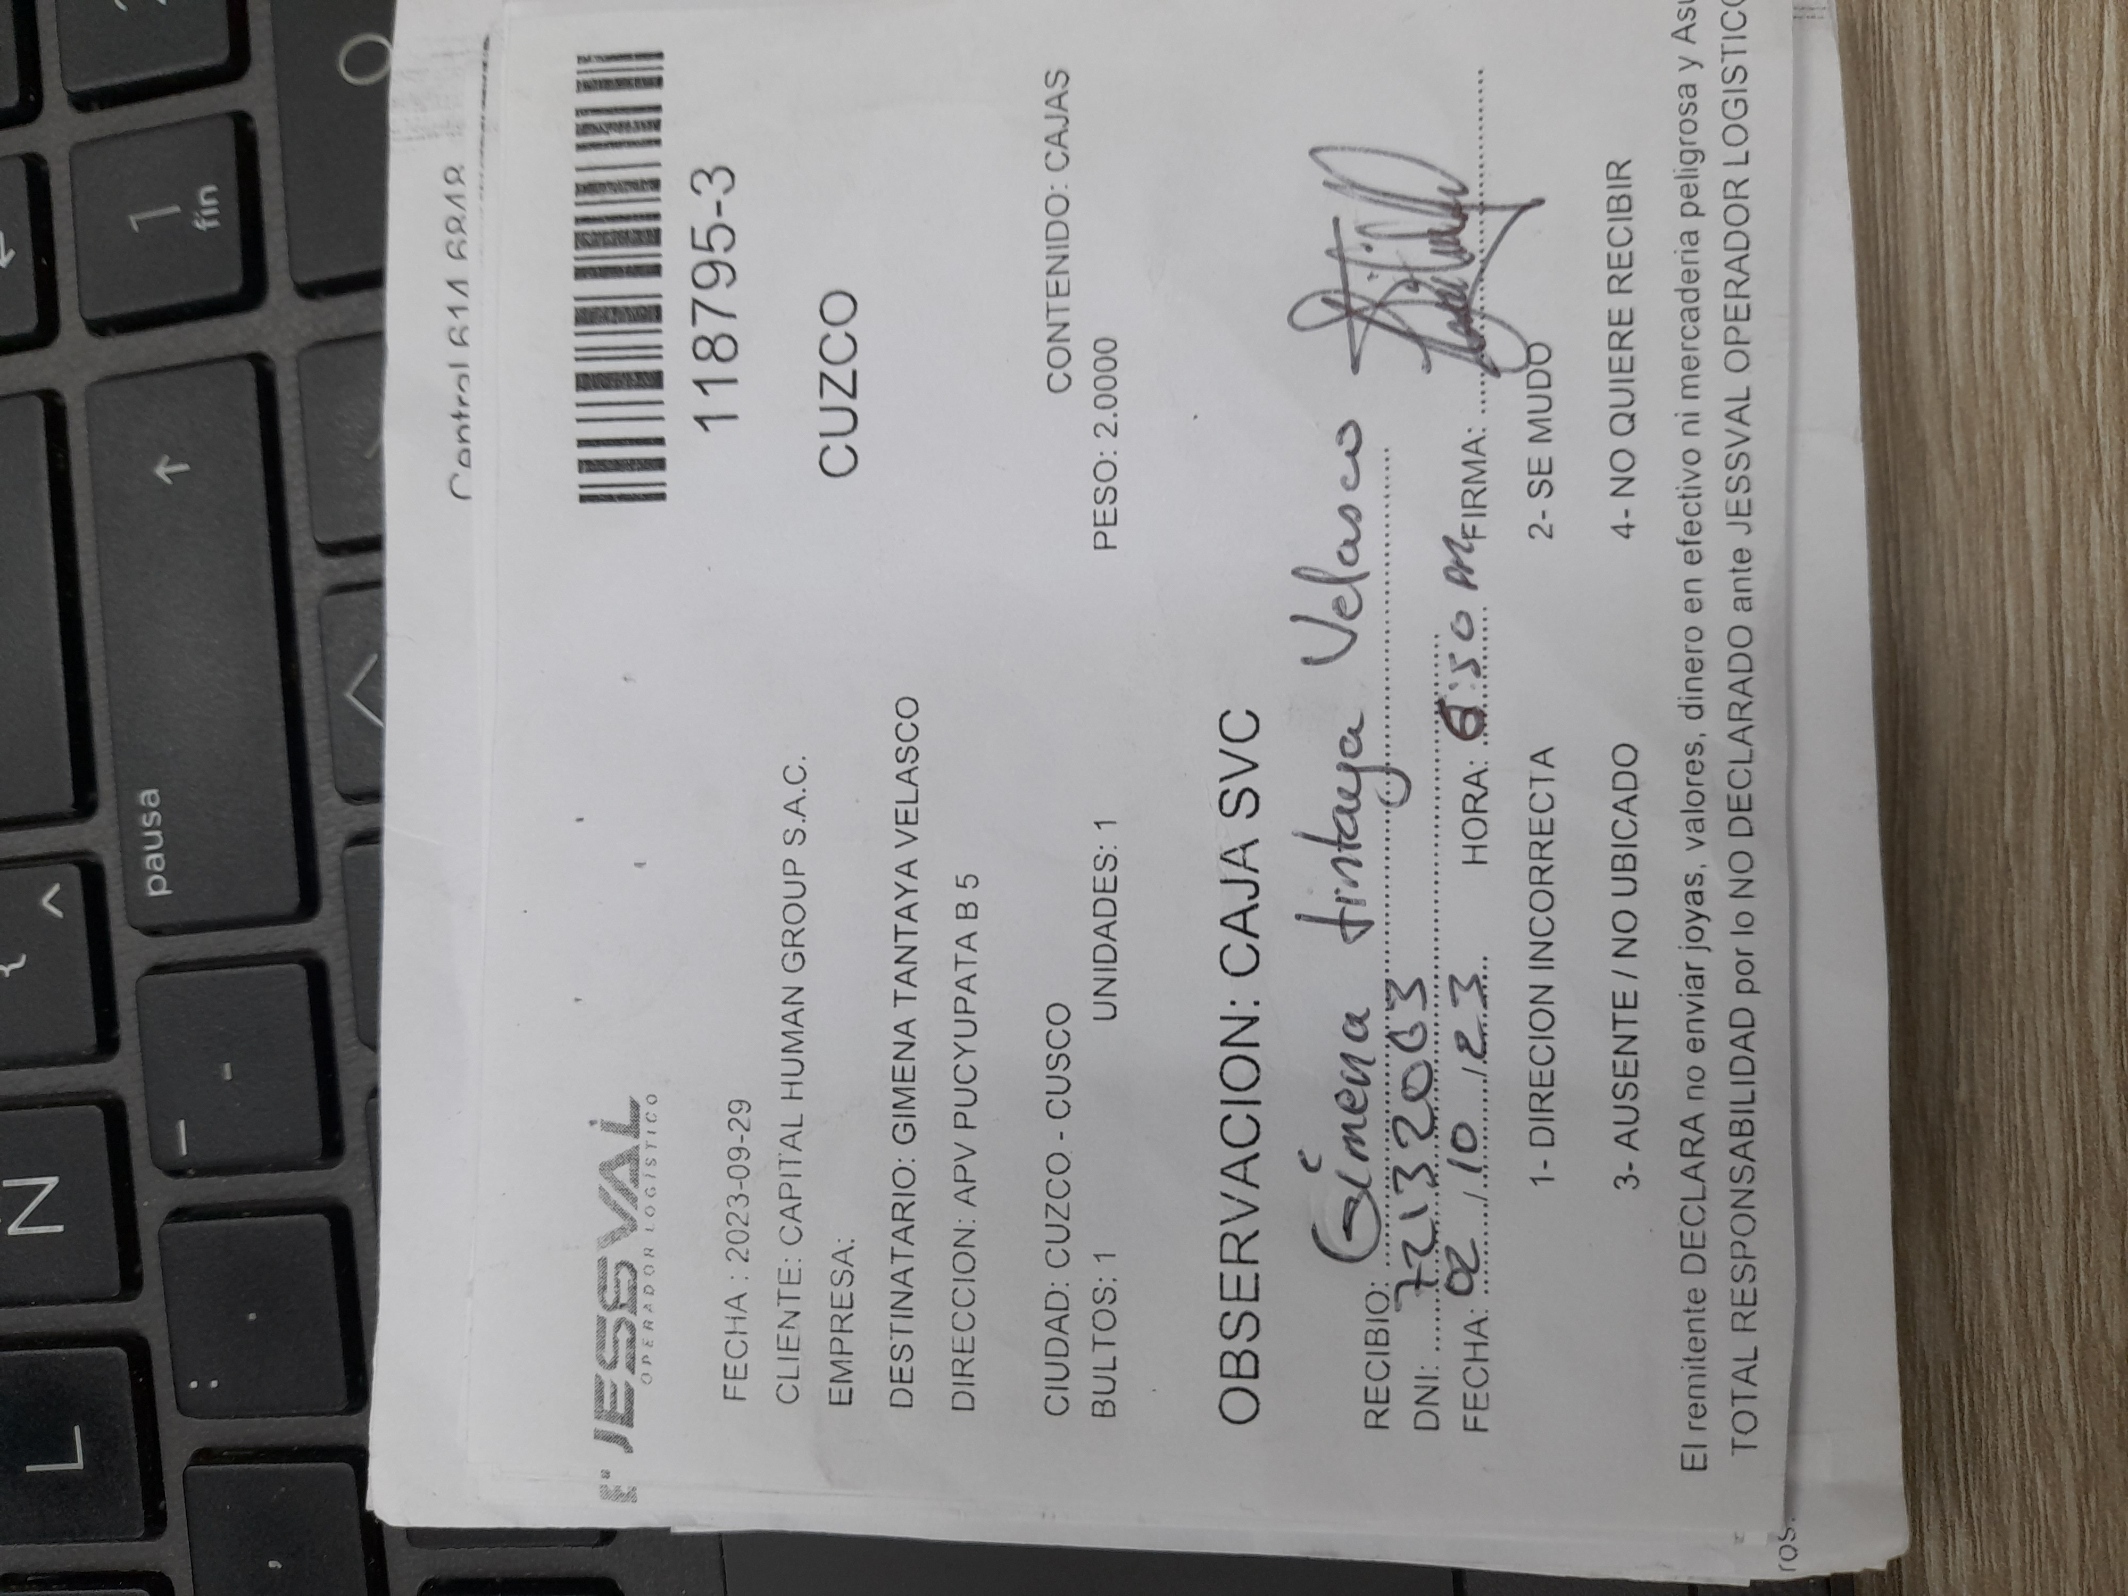 L Ñ { ^
pausa ↑ 1 fin
: . _ -
,
O
Central 614 6848
JESSVAL
OPERADOR LOGÍSTICO
118795-3
FECHA : 2023-09-29
CLIENTE: CAPITAL HUMAN GROUP S.A.C.
EMPRESA:
CUZCO
DESTINATARIO: GIMENA TANTAYA VELASCO
DIRECCION: APV PUCYUPATA B 5
CIUDAD: CUZCO - CUSCO CONTENIDO: CAJAS
BULTOS: 1 UNIDADES: 1 PESO: 2.0000
OBSERVACION: CAJA SVC
RECIBIO: Gimena tintaya Velasco
DNI: 72132063
FECHA: 02/10/23 HORA: 6:50 PM FIRMA:
1- DIRECION INCORRECTA 2- SE MUDO
3- AUSENTE / NO UBICADO 4- NO QUIERE RECIBIR
El remitente DECLARA no enviar joyas, valores, dinero en efectivo ni mercaderia peligrosa y
TOTAL RESPONSABILIDAD por lo NO DECLARADO ante JESSVAL OPERADOR LOGISTICO
ros.